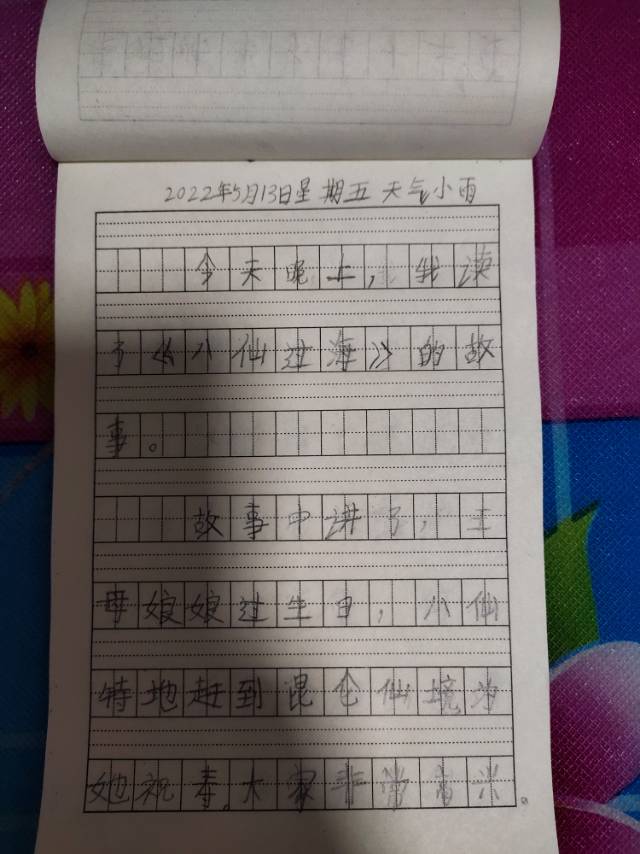 2022年5月13日星期五 天气小雨
今天晚上，我读
了《八仙过海》的故
事。
故事中讲了，王
母娘娘过生日，八仙
特地赶到昆仑仙境为
她祝寿。大家非常高兴。